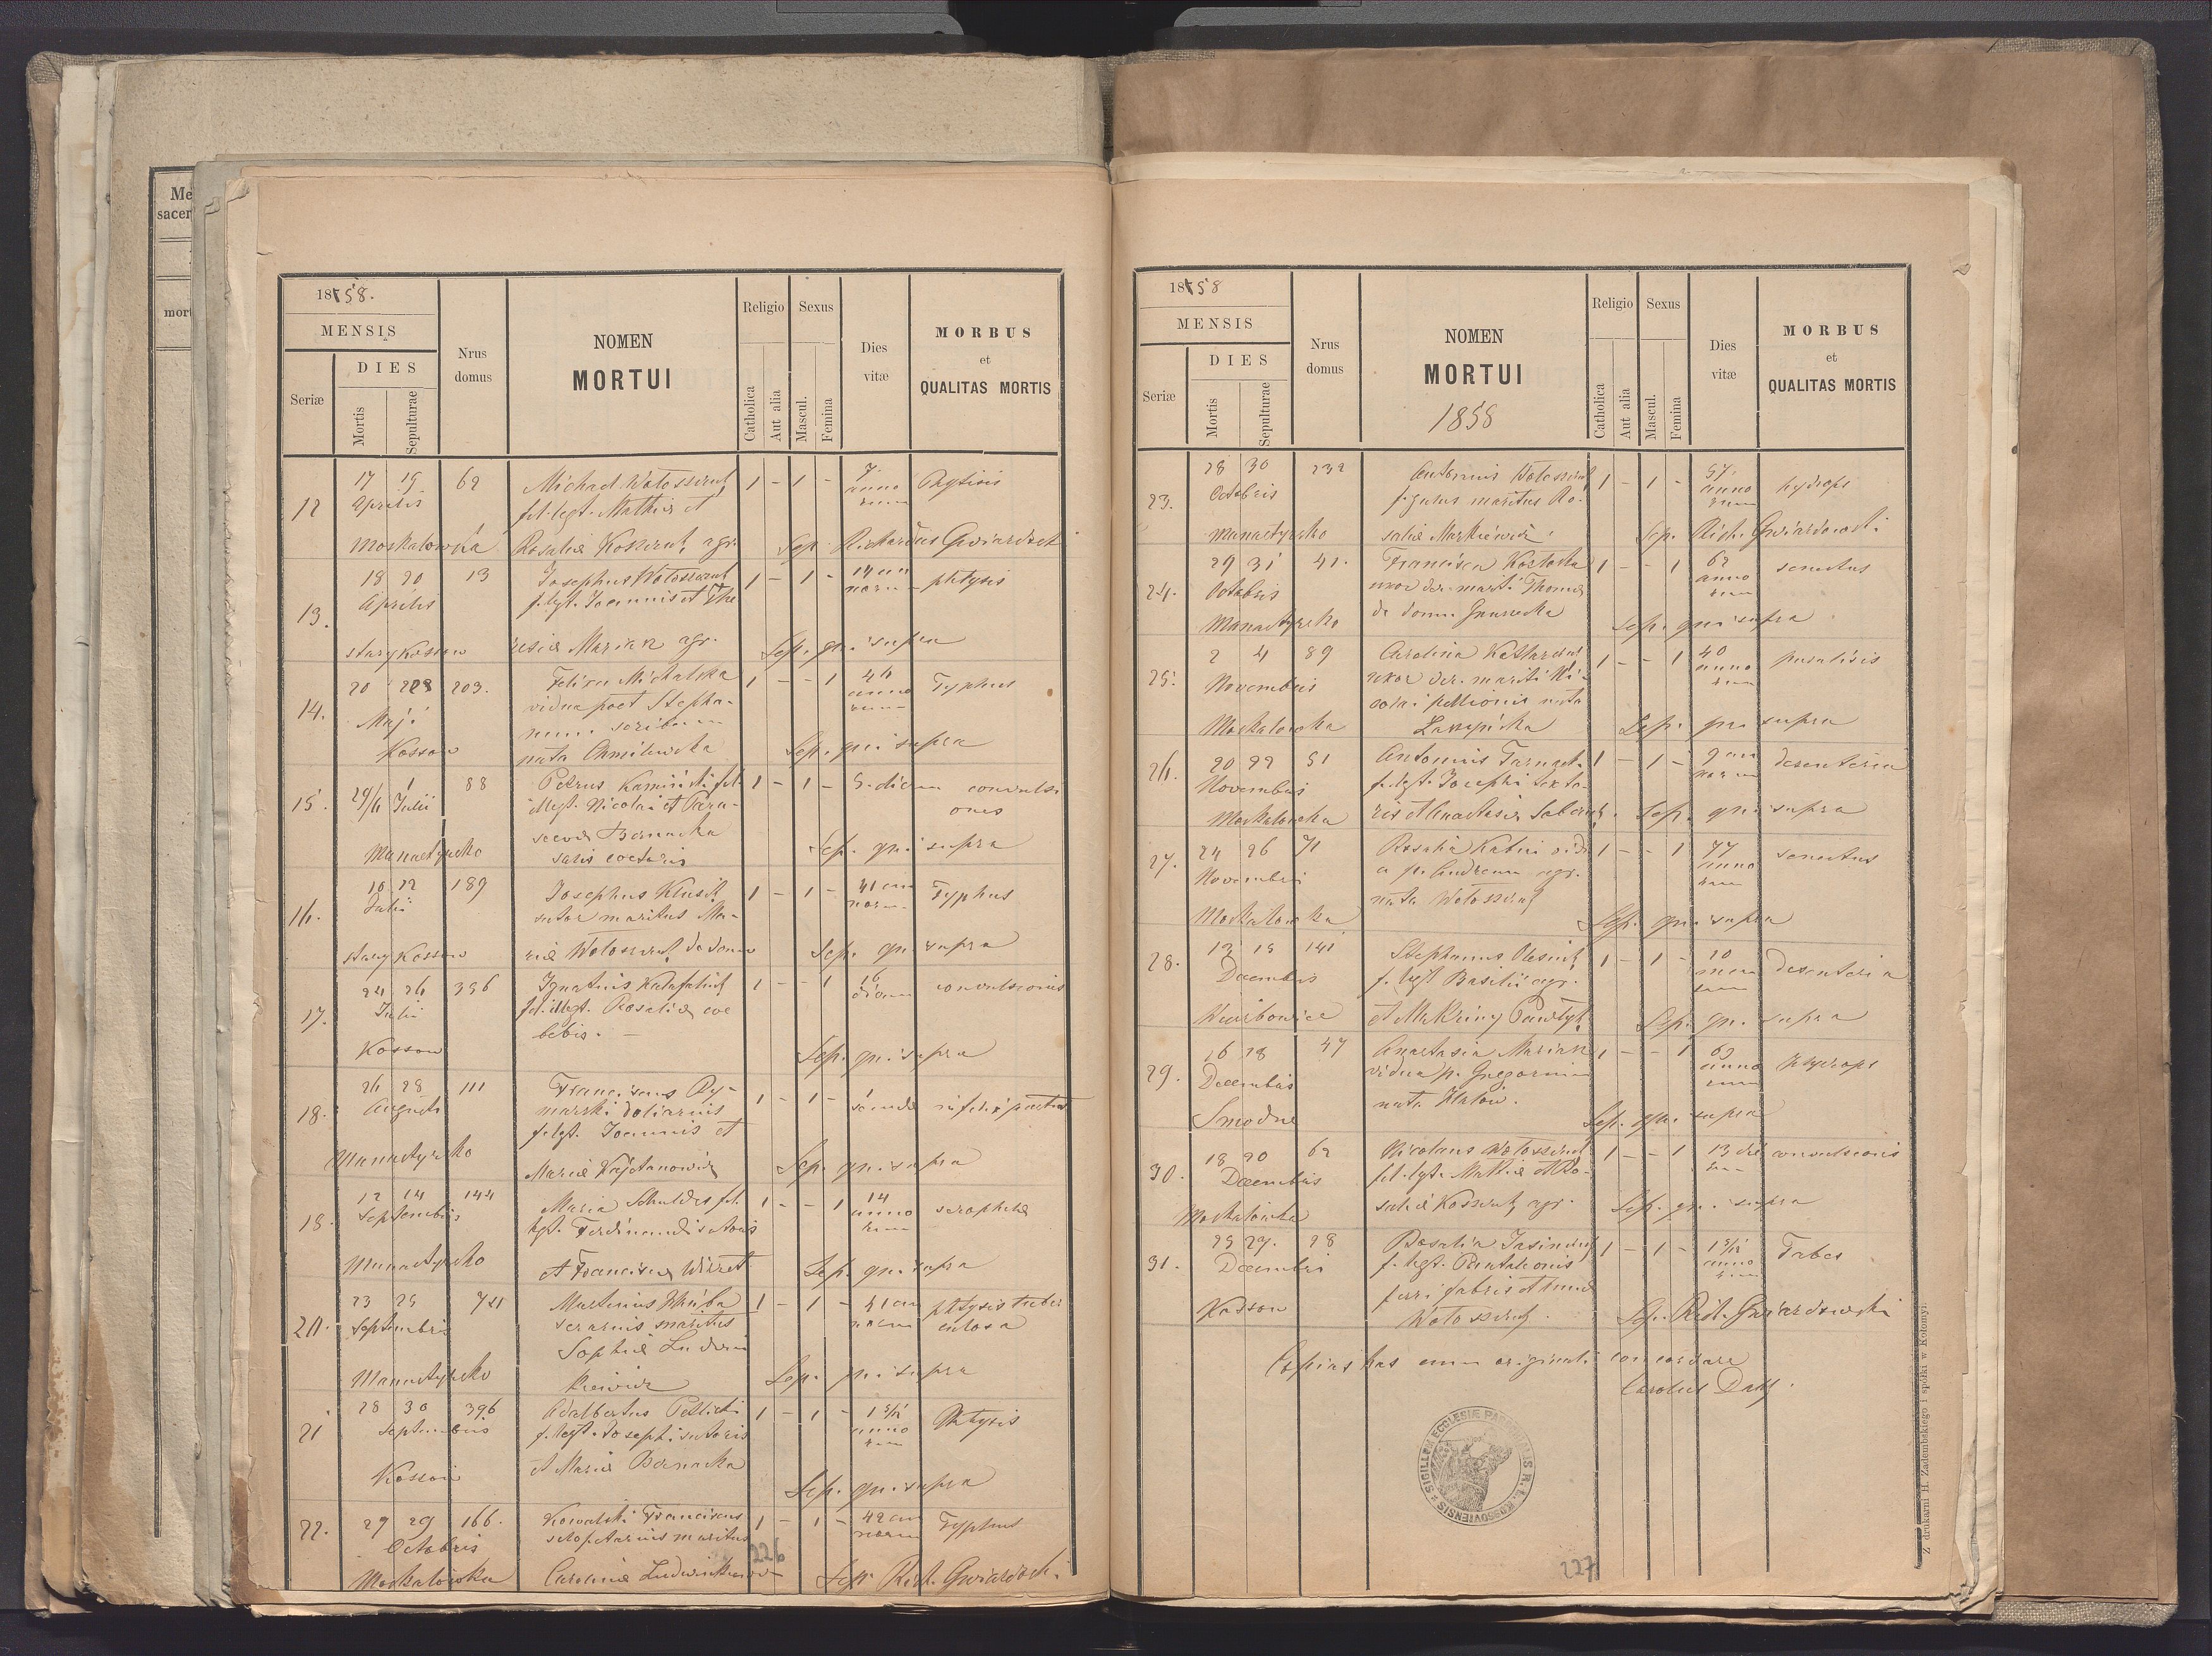 Me
sacer
mort
1858.
MENSIS
DIES
Seriæ
Mortis
Sepulturae
Nrus
domus
NOMEN
MORTUI
Religio
Catholica
Aut alia
Sexus
Mascul.
Femina
Dies
vitæ
MORBUS
et
QUALITAS MORTIS
12
17 19 62 Michael Wołoszczuk 1 - 1 - 7 Phtysis
Aprilis fil. legt. Mathiæ et anno
rum
Moskalowka Rosaliæ Koszczuk agr. Sep. Richardus Gwiardoski
13.
18 20 13 Josephus Wołoszczuk 1 - 1 - 14 an phtysis
Aprilis f. legt. Joannis et The norum
stary Kossow resiæ Marian agr. Sep. qui supra
14.
20 203. Michalska 1 - - 1 46 Typhus
Maji vidua post Stepha- anno
num rum
Kossow nata Chmilewska Sep. qui supra
15.
29/6 1 Julii 88 Petrus Kaminski fil. 1 - 1 - 5. dierum convulsi
illegt. Nicolai et Para- ones
scevæ Bernacka
Manastyrsko Sep. qui supra
16.
10 12 189 Josephus Klusik 1 - 1 - 41 an Typhus
Julii sutor maritus Ma- norum
stary Kossow riæ Wołoszczuk de domo Sep. qui supra
17.
24 26 396 Ignatius 1 - - 1 16 convulsionis
Julii fil. illegt. Rosaliæ coe dierum
libis. -
Kossow Sep. qui supra
18.
26 28 111 Franciscus Ry- 1 - 1 -
Augusti marski doliarius
f. legt. Joannis et
Manastyrsko Mariæ Kajetanowicz Sep. qui supra
18.
12 14 144 Maria fil. 1 - - 1 14 scrophulæ
Septembris legt. Ferdinandi sutoris anno
rum
Manastyrsko et Franciscæ Sep. qui supra
20.
23 25 Martinus 1 - 1 - 41 an phtysis tuber
Septembris maritus norum culosa
Sophiæ Ludwi
Manastyrsko kiewicz Sep. qui supra
21
28 30 396 Adalbertus 1 - 1 - 1 5/12 Phtysis
Septembris f. legt. Josephi sutoris anno
rum
Kossow et Mariæ Bernacka
Sep. qui supra
22.
27 29 166. Kowalski Franciscus 1 - 1 - 42 an Typhus
Octobris maritus norum
Moskalowka Carolinæ Ludwinkiewicz Sep. Rich. Gwiardoski.
226
1858
MENSIS
DIES
Seriæ
Mortis
Sepulturae
Nrus
domus
NOMEN
MORTUI
1858
Religio
Catholica
Aut alia
Sexus
Mascul.
Femina
Dies
vitæ
MORBUS
et
QUALITAS MORTIS
23.
28 30 232 Antonius Wołoszczuk 1 - 1 - 57. hydrops
Octobris figulus maritus Ro- anno
rum
Manastyrsko saliæ Markiewicz. Sep. Rich. Gwiardowski.
24.
29 31 41. Francisca 1 - - 1 62 senectus
Octobris uxor der. mariti Thomæ anno
rum
Manastyrsko de domo Sep. qui supra
25.
2 4 89 Carolina 1 - - 1 40 paralisis
Novembris uxor der. mariti Ni- anno
colai pellionis nata rum
Moskalowka Sep. qui supra
26.
20 22 51 Antonius 1 - 1 - 9 an desenteria
Novembris f. legt. Josephi norum
Moskalowka et Anastasiæ Sep. qui supra
27.
24 26 71 Rosalia vidu 1 - - 1 77 senectus
Novembris a p. Andream agr. anno
nata Wołoszczuk rum
Moskalowka Sep. qui supra
28.
13 15 141 Stephanus Olesiuk 1 - 1 - 10 desenteria
Decembris f. legt. Basilii agr. men
sium
Wierbowice et Sep. qui supra
29.
16 18 47 Anastasia Marian 1 - - 1 hydrops
Decembris vidua p. Gregorium anno
nata rum
Smodne Sep. qui supra
30.
18 20 62 Nicolaus Wołoszczuk 1 - - 1 13 die convulsionis
Decembris fil. legt. Mathiæ et Ro- rum
Moskalowka saliæ Koszczuk agr. Sep. qui supra
31.
25 27. 28 Rosalia 1 - 1 - 1 5/12 Tabes
Decembris f. legt. Pantaleonis anno
ferri fabris et rum
Kossow Wołoszczuk. Sep. Rich. Gwiardowski
Copias has cum originali concordare
Carolus
SIGILLUM ECCLESIÆ PAROCHIALIS R. L. KOSSOVIENSIS
227
Z drukarni H. Zadembskiego i spółki w Kołomyi.